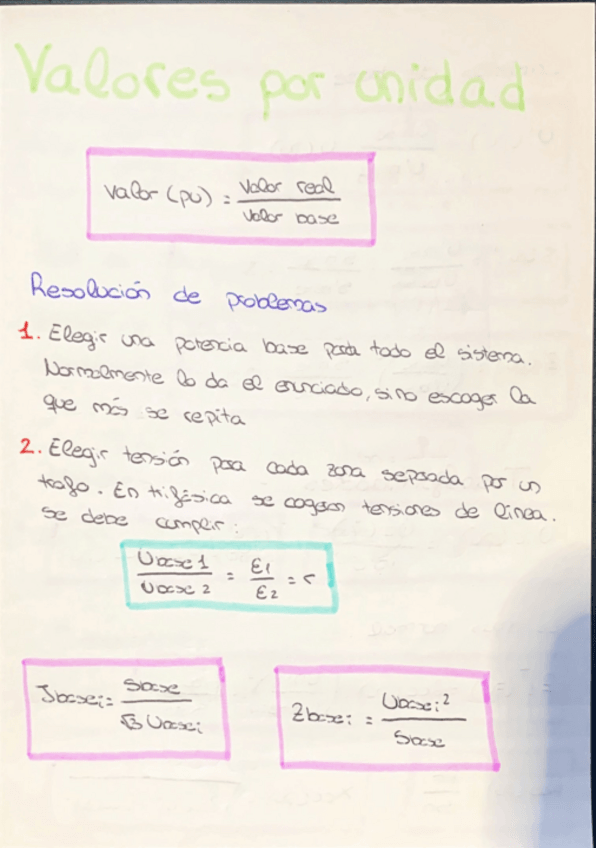 Valores por unidad
Valor (pu) = Valor real / Valor base
Resolución de problemas
1. Elegir una potencia base para todo el sistema.
Normalmente lo da el enunciado, sino escoger la
que más se repita
2. Elegir tensión para cada zona separada por un
trafo. En trifásica se cogen tensiones de línea.
se debe cumplir:
Ubase 1 / Ubase 2 = E1 / E2 = r
Ibasei = Sbase / √3 Ubasei
Zbasei = Ubasei² / Sbase